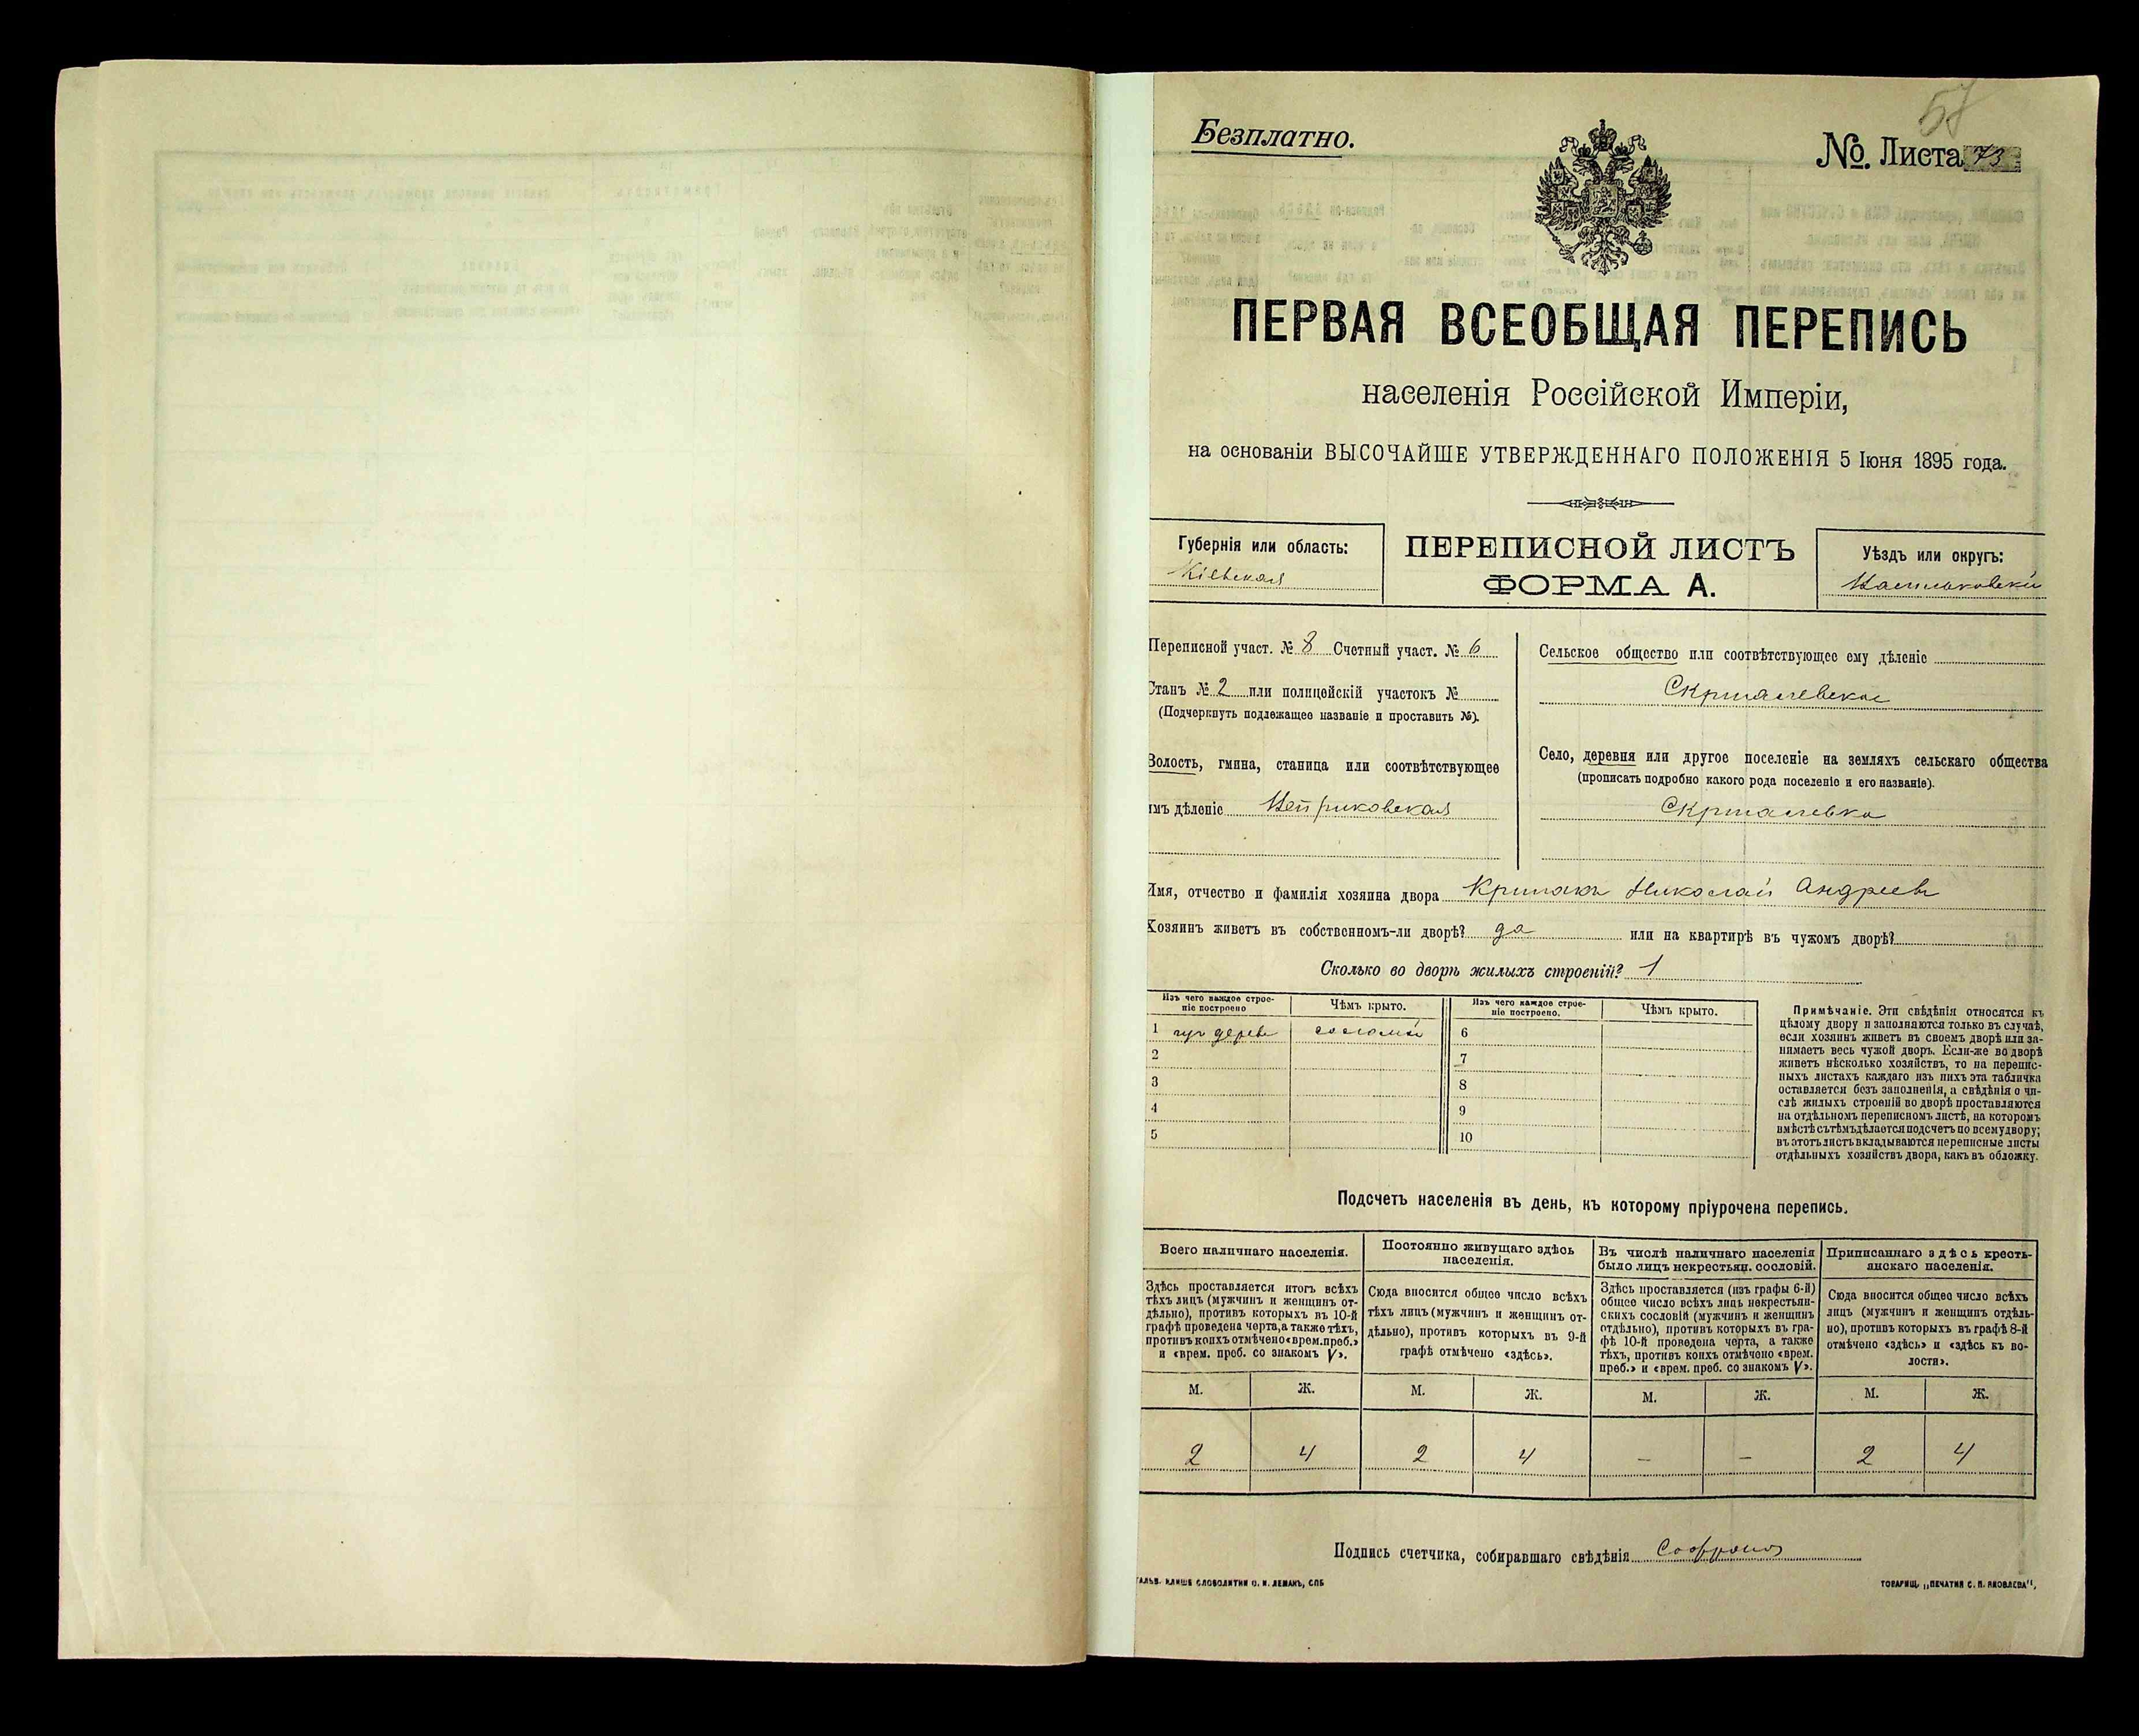 57
Безплатно.
№. Листа 73
ПЕРВАЯ ВСЕОБЩАЯ ПЕРЕПИСЬ
населенія Россійской Имперіи,
на основаніи ВЫСОЧАЙШЕ УТВЕРЖДЕННАГО ПОЛОЖЕНІЯ 5 Іюня 1895 года.
Губернія или область:
Кіевская
ПЕРЕПИСНОЙ ЛИСТЪ
ФОРМА А.
Уѣздъ или округъ:
Васильковскій
Переписной участ. № 8 Счетный участ. № 6
Станъ № 2 или полицейскій участокъ №
(Подчеркнуть подлежащее названіе и проставить №).
Волость, гмина, станица или соотвѣтствующее
имъ дѣленіе
Сельское общество или соотвѣтствующее ему дѣленіе
Село, деревня или другое поселеніе на земляхъ сельскаго общества
(прописать подробно какого рода поселеніе и его названіе).
Имя, отчество и фамилія хозяина двора Николай Андреевъ
Хозяинъ живетъ въ собственномъ-ли дворѣ? да или на квартирѣ въ чужомъ дворѣ?
Сколько во дворѣ жилыхъ строеній? 1
Изъ чего каждое строе-
ніе построено
Чѣмъ крыто.
Изъ чего каждое строе-
ніе построено.
Чѣмъ крыто.
1 дерева соломой 6
2 7
3 8
4 9
5 10
Примѣчаніе. Эти свѣдѣнія относятся къ
цѣлому двору и заполняются только въ случаѣ,
если хозяинъ живетъ въ своемъ дворѣ или за-
нимаетъ весь чужой дворъ. Если-же во дворѣ
живетъ нѣсколько хозяйствъ, то на перепис-
ныхъ листахъ каждаго изъ нихъ эта табличка
оставляется безъ заполненія, а свѣдѣнія о чи-
слѣ жилыхъ строеній во дворѣ проставляются
на отдѣльномъ переписномъ листѣ, на которомъ
вмѣстѣ съ тѣмъ дѣлается подсчетъ по всему двору;
въ этотъ листъ вкладываются переписные листы
отдѣльныхъ хозяйствъ двора, какъ въ обложку.
Подсчетъ населенія въ день, къ которому пріурочена перепись.
Всего наличнаго населенія.
Здѣсь проставляется итогъ всѣхъ
тѣхъ лицъ (мужчинъ и женщинъ от-
дѣльно), противъ которыхъ въ 10-й
графѣ проведена черта, а также тѣхъ,
противъ коихъ отмѣчено «врем. преб.»
и «врем. преб. со знакомъ V».
Постоянно живущаго здѣсь
населенія.
Сюда вносится общее число всѣхъ
тѣхъ лицъ (мужчинъ и женщинъ от-
дѣльно), противъ которыхъ въ 9-й
графѣ отмѣчено «здѣсь».
Въ числѣ наличнаго населенія
было лицъ некрестьян. сословій.
Здѣсь проставляется (изъ графы 6-й)
общее число всѣхъ лицъ некрестьян-
скихъ сословій (мужчинъ и женщинъ
отдѣльно), противъ которыхъ въ гра-
фѣ 10-й проведена черта, а также
тѣхъ, противъ коихъ отмѣчено «врем.
преб.» и «врем. преб. со знакомъ V».
Приписаннаго здѣсь кресть-
янскаго населенія.
Сюда вносится общее число всѣхъ
лицъ (мужчинъ и женщинъ отдѣль-
но), противъ которыхъ въ графѣ 8-й
отмѣчено «здѣсь» и «здѣсь къ во-
лости».
М. Ж. М. Ж. М. Ж. М. Ж.
2 4 2 4 – – 2 4
Подпись счетчика, собиравшаго свѣдѣнія
ГАЛЬВ. КЛИШЕ СЛОВОЛИТНИ О. И. ЛЕМАНЪ, СПБ
ТОВАРИЩ. „ПЕЧАТНЯ С. П. ЯКОВЛЕВА“.